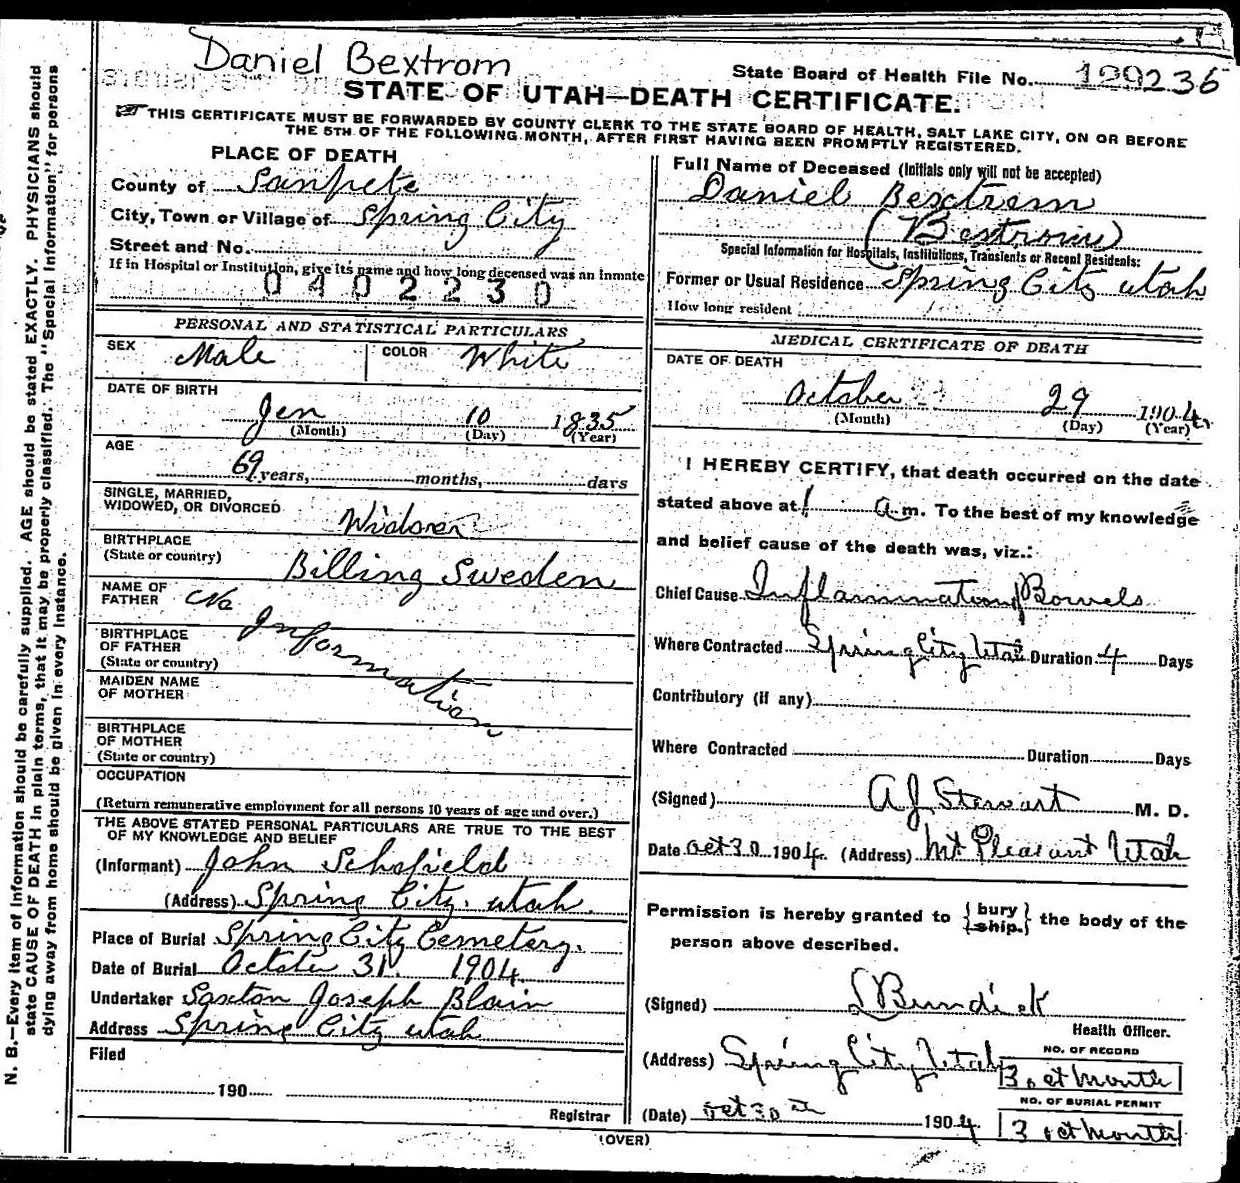 Daniel Bextrom
State Board of Health File No. 129236
STATE OF UTAH—DEATH CERTIFICATE.
THIS CERTIFICATE MUST BE FORWARDED BY COUNTY CLERK TO THE STATE BOARD OF HEALTH, SALT LAKE CITY, ON OR BEFORE
THE 5TH OF THE FOLLOWING MONTH, AFTER FIRST HAVING BEEN PROMPTLY REGISTERED.
PLACE OF DEATH
County of Sanpete
City, Town or Village of Spring City
Street and No.
If in Hospital or Institution, give its name and how long deceased was an inmate
0402230
PERSONAL AND STATISTICAL PARTICULARS
SEX Male COLOR White
DATE OF BIRTH
Jen 10 1835
(Month) (Day) (Year)
AGE
69 years, months, days
SINGLE, MARRIED,
WIDOWED, OR DIVORCED Widower
BIRTHPLACE
(State or country) Billing Sweden
NAME OF
FATHER No
BIRTHPLACE
OF FATHER
(State or country)
Information
MAIDEN NAME
OF MOTHER
BIRTHPLACE
OF MOTHER
(State or country)
OCCUPATION
(Return remunerative employment for all persons 10 years of age and over.)
THE ABOVE STATED PERSONAL PARTICULARS ARE TRUE TO THE BEST
OF MY KNOWLEDGE AND BELIEF
(Informant) John Schofield
(Address) Spring City. utah.
Place of Burial Spring City Cemetery.
Date of Burial October 31. 1904.
Undertaker Saxton Joseph Blain
Address Spring City utah
Filed
190
Registrar
Full Name of Deceased (Initials only will not be accepted)
Daniel Bextrem
(Bestrom)
Special Information for Hospitals, Institutions, Transients or Recent Residents:
Former or Usual Residence Spring City utah
How long resident
MEDICAL CERTIFICATE OF DEATH
DATE OF DEATH
October 29 1904
(Month) (Day) (Year)
I HEREBY CERTIFY, that death occurred on the date
stated above at 1 a m. To the best of my knowledge
and belief cause of the death was, viz.:
Chief Cause Inflammation of Bowels
Where Contracted Spring City Utah Duration 4 Days
Contributory (if any)
Where Contracted Duration Days
(Signed) A J Stewart M. D.
Date Oct 30 1904. (Address) Mt Pleasant Utah
Permission is hereby granted to { bury ship. } the body of the
person above described.
(Signed) L Bundick
Health Officer.
(Address) Spring City Utah
NO. OF RECORD
3 oct month
NO. OF BURIAL PERMIT
3 oct month
(Date) Oct 30th 1904
(OVER)
N. B.—Every item of information should be carefully supplied. AGE should be stated EXACTLY. PHYSICIANS should
state CAUSE OF DEATH in plain terms, that it may be properly classified. The "Special Information" for persons
dying away from home should be given in every instance.